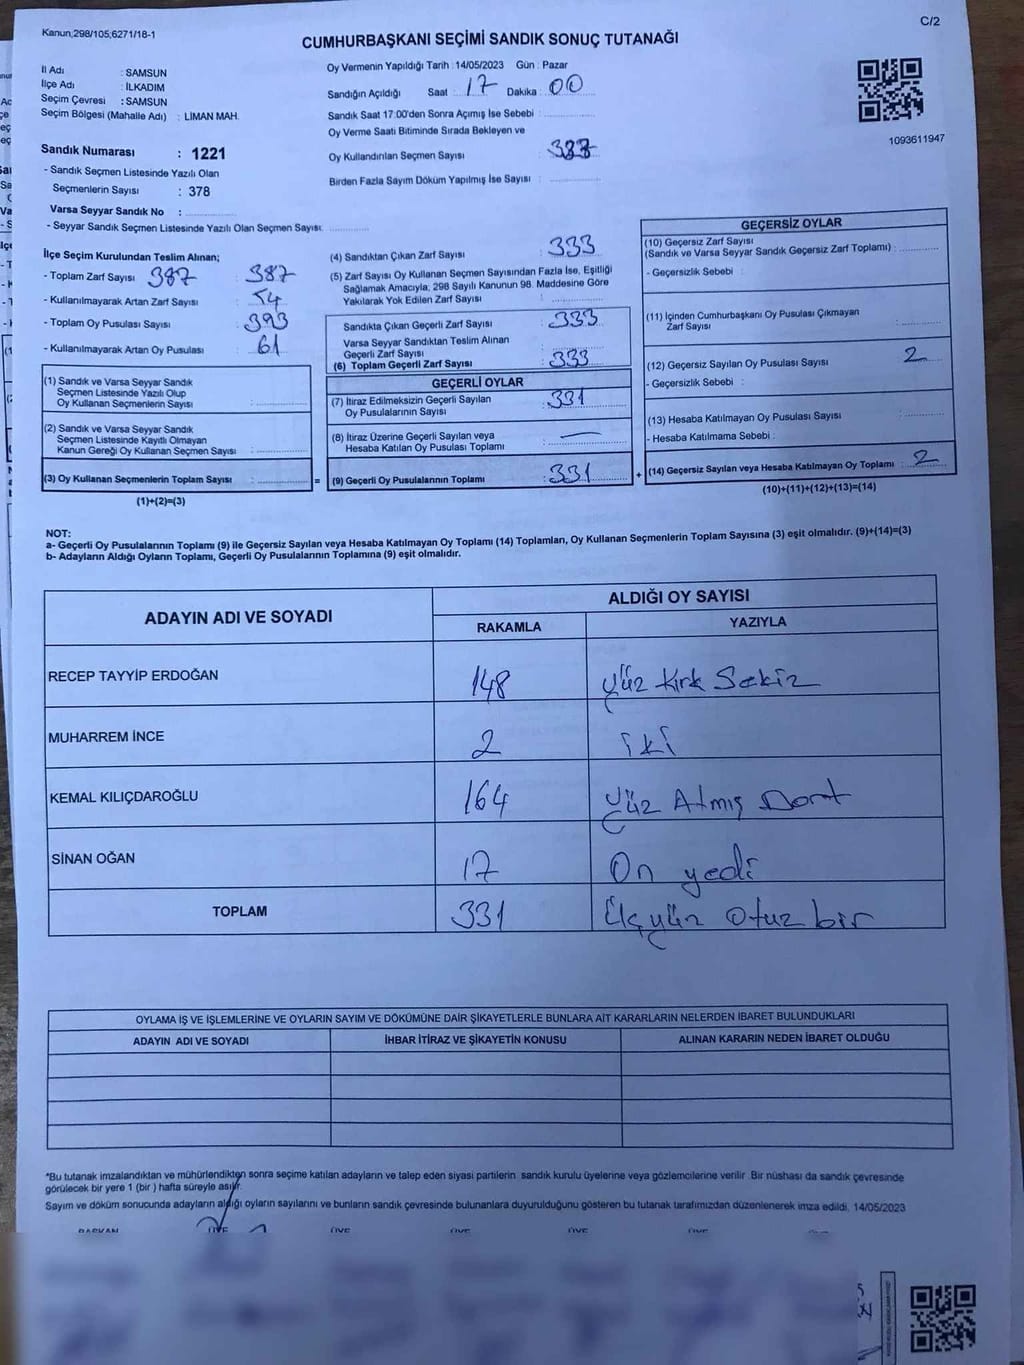 Kanun;298/105;6271/18-1
C/2
CUMHURBAŞKANI SEÇİMİ SANDIK SONUÇ TUTANAĞI
İl Adı : SAMSUN
İlçe Adı : İLKADIM
Seçim Çevresi : SAMSUN
Seçim Bölgesi (Mahalle Adı) : LİMAN MAH.
Sandık Numarası : 1221
- Sandık Seçmen Listesinde Yazılı Olan
Seçmenlerin Sayısı : 378
Varsa Seyyar Sandık No :
- Seyyar Sandık Seçmen Listesinde Yazılı Olan Seçmen Sayısı:
Oy Vermenin Yapıldığı Tarih :14/05/2023 Gün : Pazar
Sandığın Açıldığı Saat : 17 Dakika : 00
Sandık Saat 17:00'den Sonra Açımış İse Sebebi :
Oy Verme Saati Bitiminde Sırada Bekleyen ve
Oy Kullandırılan Seçmen Sayısı :
Birden Fazla Sayım Döküm Yapılmış İse Sayısı :
1093611947
İlçe Seçim Kurulundan Teslim Alınan;
- Toplam Zarf Sayısı 387 : 387
- Kullanılmayarak Artan Zarf Sayısı : 54
- Toplam Oy Pusulası Sayısı : 393
- Kullanılmayarak Artan Oy Pusulası : 61
(1) Sandık ve Varsa Seyyar Sandık
Seçmen Listesinde Yazılı Olup
Oy Kullanan Seçmenlerin Sayısı :
(2) Sandık ve Varsa Seyyar Sandık
Seçmen Listesinde Kayıtlı Olmayan
Kanun Gereği Oy Kullanan Seçmen Sayısı :
(3) Oy Kullanan Seçmenlerin Toplam Sayısı :
(1)+(2)=(3)
=
(4) Sandıktan Çıkan Zarf Sayısı : 333
(5) Zarf Sayısı Oy Kullanan Seçmen Sayısından Fazla İse, Eşitliği
Sağlamak Amacıyla; 298 Sayılı Kanunun 98. Maddesine Göre
Yakılarak Yok Edilen Zarf Sayısı :
Sandıkta Çıkan Geçerli Zarf Sayısı : 333
Varsa Seyyar Sandıktan Teslim Alınan
Geçerli Zarf Sayısı :
(6) Toplam Geçerli Zarf Sayısı : 333
GEÇERLİ OYLAR
(7) İtiraz Edilmeksizin Geçerli Sayılan
Oy Pusulalarının Sayısı : 331
(8) İtiraz Üzerine Geçerli Sayılan veya
Hesaba Katılan Oy Pusulası Toplamı : —
(9) Geçerli Oy Pusulalarının Toplamı : 331
+
GEÇERSİZ OYLAR
(10) Geçersiz Zarf Sayısı
(Sandık ve Varsa Seyyar Sandık Geçersiz Zarf Toplamı) :
- Geçersizlik Sebebi :
(11) İçinden Cumhurbaşkanı Oy Pusulası Çıkmayan
Zarf Sayısı :
(12) Geçersiz Sayılan Oy Pusulası Sayısı : 2
- Geçersizlik Sebebi :
(13) Hesaba Katılmayan Oy Pusulası Sayısı :
- Hesaba Katılmama Sebebi :
(14) Geçersiz Sayılan veya Hesaba Katılmayan Oy Toplamı : 2
(10)+(11)+(12)+(13)=(14)
NOT:
a- Geçerli Oy Pusulalarının Toplamı (9) ile Geçersiz Sayılan veya Hesaba Katılmayan Oy Toplamı (14) Toplamları, Oy Kullanan Seçmenlerin Toplam Sayısına (3) eşit olmalıdır. (9)+(14)=(3)
b- Adayların Aldığı Oyların Toplamı, Geçerli Oy Pusulalarının Toplamına (9) eşit olmalıdır.
ADAYIN ADI VE SOYADI
ALDIĞI OY SAYISI
RAKAMLA YAZIYLA
RECEP TAYYİP ERDOĞAN 148 Yüz Kırk Sekiz
MUHARREM İNCE 2 iki
KEMAL KILIÇDAROĞLU 164 Yüz Atmış Dört
SİNAN OĞAN 17 On yedi
TOPLAM 331 Üçyüz Otuz bir
OYLAMA İŞ VE İŞLEMLERİNE VE OYLARIN SAYIM VE DÖKÜMÜNE DAİR ŞİKAYETLERLE BUNLARA AİT KARARLARIN NELERDEN İBARET BULUNDUKLARI
ADAYIN ADI VE SOYADI İHBAR İTİRAZ VE ŞİKAYETİN KONUSU ALINAN KARARIN NEDEN İBARET OLDUĞU
*Bu tutanak imzalandıktan ve mühürlendikten sonra seçime katılan adayların ve talep eden siyasi partilerin sandık kurulu üyelerine veya gözlemcilerine verilir. Bir nüshası da sandık çevresinde
görülecek bir yere 1 (bir ) hafta süreyle asılır.
Sayım ve döküm sonucunda adayların aldığı oyların sayılarını ve bunların sandık çevresinde bulunanlara duyurulduğunu gösteren bu tutanak tarafımızdan düzenlenerek imza edildi. 14/05/2023
BAŞKAN ÜYE ÜYE ÜYE ÜYE ÜYE